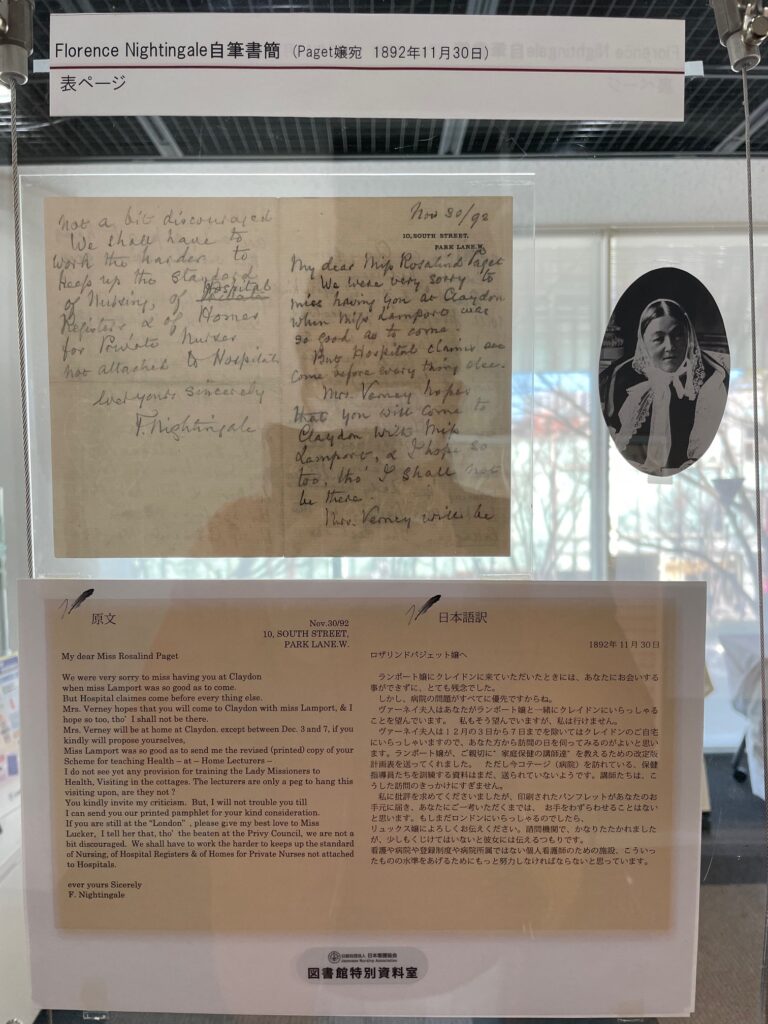 Florence Nightingale自筆書簡 (Paget嬢宛 1892年11月30日)
表ページ
not a bit discouraged
We shall have to
work the harder to
keep up the standard
of Nursing, of Hospital
Registers & of Homes
for Private Nurses
not attached to Hospitals
ever yours sincerely
F. Nightingale
Nov 30/92
10, SOUTH STREET,
PARK LANE. W.
My dear Miss Rosalind Paget
We were very sorry to
miss having you at Claydon
when Miss Lamport was
so good as to come.
But Hospital claims
come before every thing else.
Mrs. Verney hopes
that you will come to
Claydon with Miss
Lamport, & I hope so
too, tho' I shall not
be there.
Mrs. Verney will be
原文
Nov.30/92
10, SOUTH STREET,
PARK LANE.W.
My dear Miss Rosalind Paget
We were very sorry to miss having you at Claydon
when miss Lamport was so good as to come.
But Hospital claims come before every thing else.
Mrs. Verney hopes that you will come to Claydon with miss Lamport, & I
hope so too, tho' I shall not be there.
Mrs. Verney will be at home at Claydon. except between Dec. 3 and 7, if you
kindly will propose yourselves,
Miss Lamport was so good as to send me the revised (printed) copy of your
Scheme for teaching Health – at – Home Lecturers –
I do not see yet any provision for training the Lady Missioners to
Health, Visiting in the cottages. The lecturers are only a peg to hang this
visiting upon, are they not ?
You kindly invite my criticism. But, I will not trouble you till
I can send you our printed pamphlet for your kind consideration.
If you are still at the "London" , please give my best love to Miss
Lucker, I tell her that, tho' the beaten at the Privy Council, we are not a
bit discouraged. We shall have to work the harder to keeps up the standard
of Nursing, of Hospital Registers & of Homes for Private Nurses not attached
to Hospitals.
ever yours Sicerely
F. Nightingale
日本語訳
1892年11月30日
ロザリンドパジェット嬢へ
ランポート嬢にクレイドンに来ていただいたときには、あなたにお会いする
事ができずに、とても残念でした。
しかし、病院の問題がすべてに優先ですからね。
ヴァーネイ夫人はあなたがランポート嬢と一緒にクレイドンにいらっしゃる
ことを望んでいます。 私もそう望んでいますが、私は行けません。
ヴァーネイ夫人は12月の3日から7日までを除いてはクレイドンのご自宅
にいらっしゃいますので、あなた方から訪問の日を伺ってみるのがよいと思い
ます。ランポート嬢が、ご親切に"家庭保健の講師達"を教えるための改定版
計画表を送ってくれました。 ただし今コテージ(病院)を訪れている、保健
指導員たちを訓練する資料はまだ、送られていないようです。講師たちは、こ
うした訪問のきっかけにすぎません。
私に批評を求めてくださいましたが、印刷されたパンフレットがあなたのお
手元に届き、あなたにご一考いただくまでは、 お手をわずらわせることはない
と思います。もしまだロンドンにいらっしゃるのでしたら、
リュックス嬢によろしくお伝えください。諮問機関で、かなりたたかれました
が、少しもくじけてはいないと彼女には伝えるつもりです。
看護や病院や登録制度や病院所属ではない個人看護師のための施設、こういっ
たものの水準をあげるためにもっと努力しなければならないと思っています。
日本看護協会
Japanese Nursing Association
図書館特別資料室